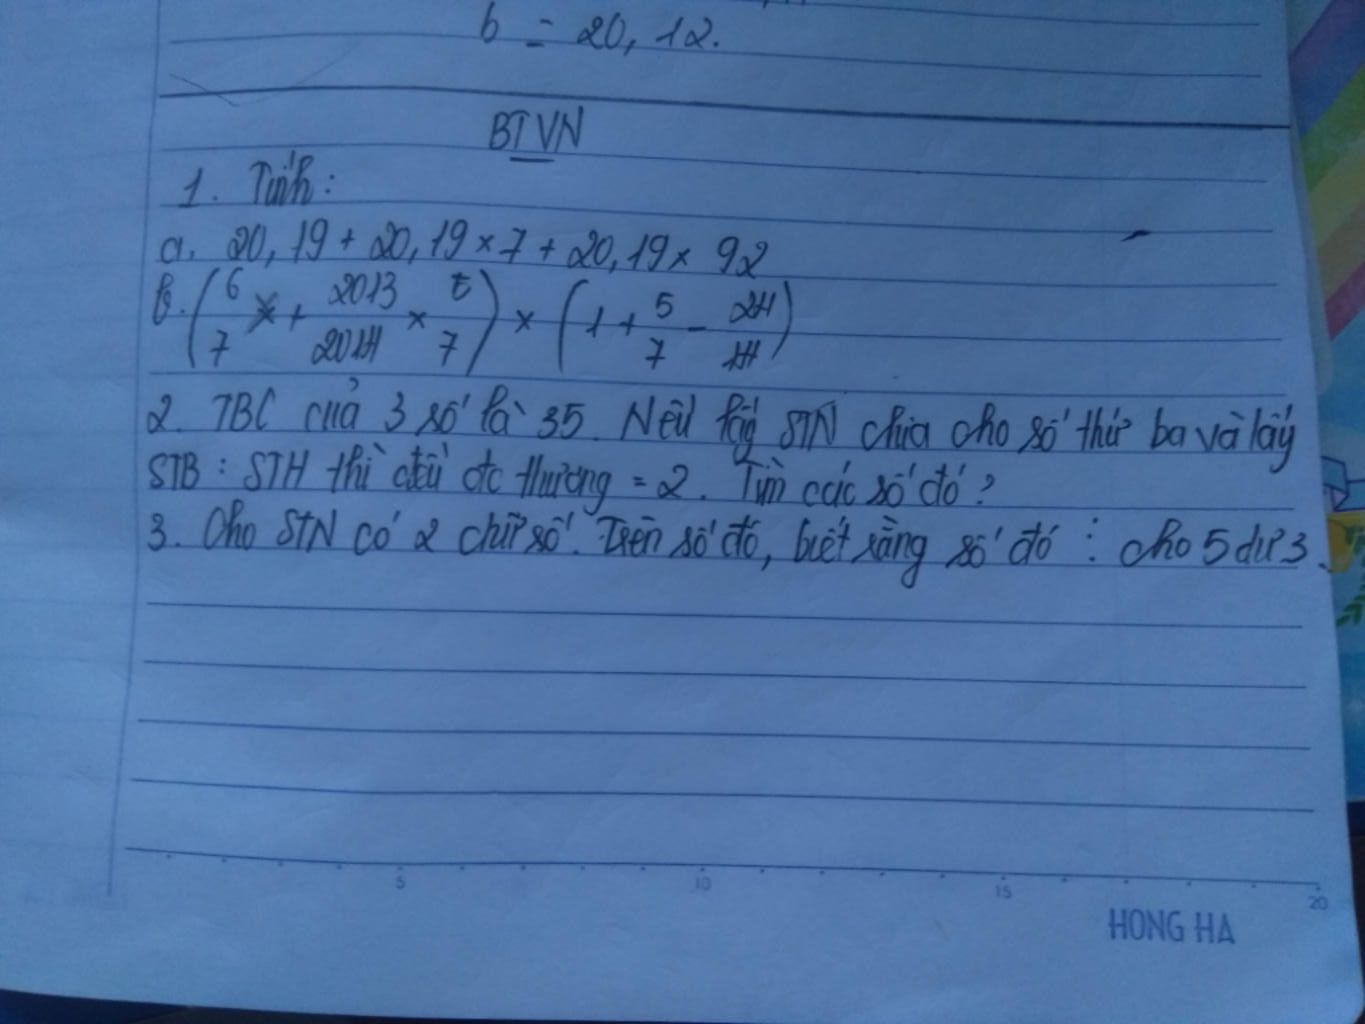 b = 20,12.
BTVN
1. Tính:
a. 20,19 + 20,19 × 7 + 20,19 × 92
b. (6/7 + 2013/2014 × 5/7) × (1 + 5/7 - 24/14)
2. TBC của 3 số là 35. Nếu lấy STN chia cho số thứ ba và lấy
STB : STH thì đều đc thương = 2. Tìm các số đó?
3. Cho STN có 2 chữ số. Trên số đó, biết rằng số đó : cho 5 dư 3.
5 10 15 20
HONG HA